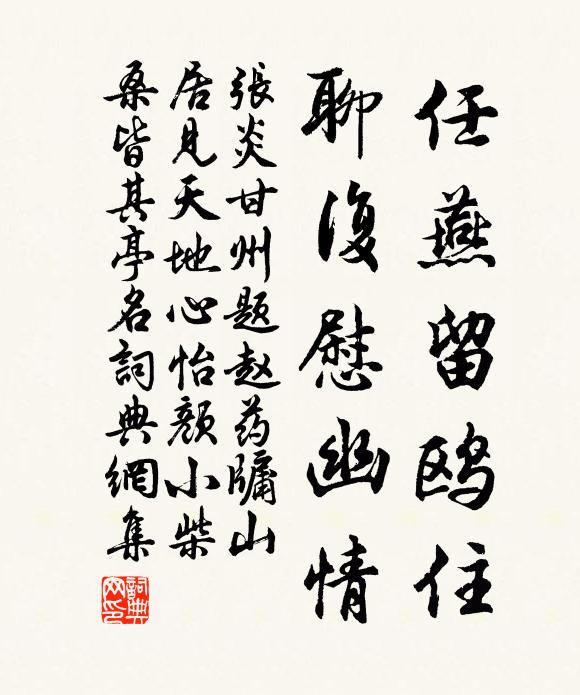 任燕留鸥住
聊復慰幽情
張炎甘州题赵药牖山
居見天地心怡顔小柴
桑皆其亭名詞典網集
詞典網印